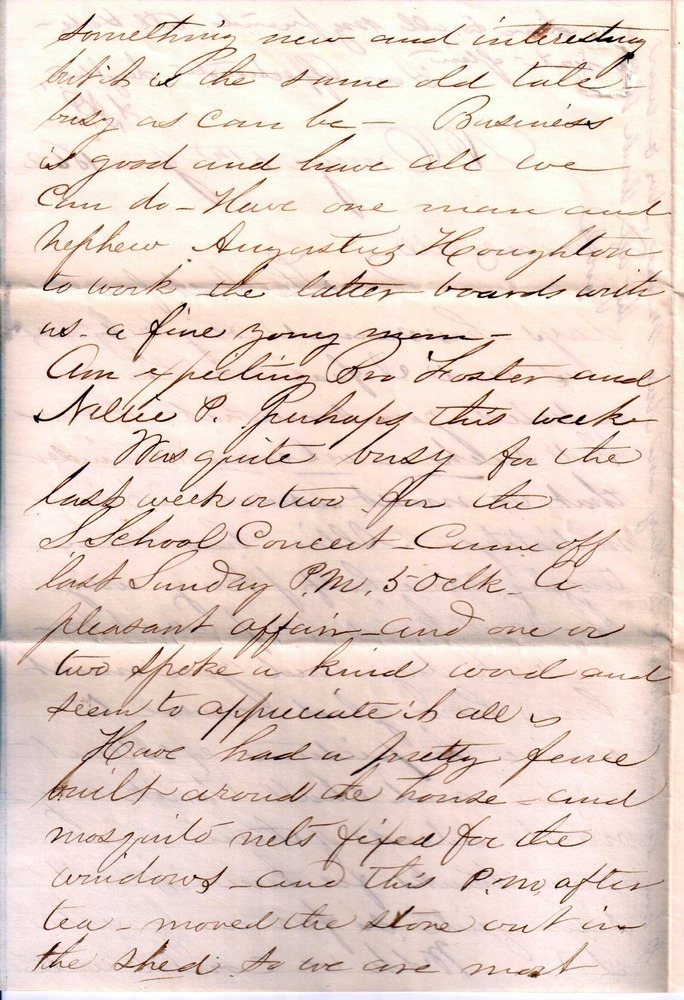 something new and interesting
but it is the same old tale -
busy as can be - Business
is good and have all we
can do - Have one man and
nephew Augustus Houghton
to work the latter boards with
us - a fine young man -
Am expecting Bro Foster and
Nellie P. perhaps this week
Was quite busy for the
last week or two for the
S School Concert - Came off
last Sunday P.M. 5 oclk - A
pleasant affair - and one or
two spoke a kind word and
seem to appreciate it all
Have had a pretty fence
built around the house - and
mosquito nets fixed for the
windows - and this P.m. after
tea - moved the stove out in
the shed so we are most